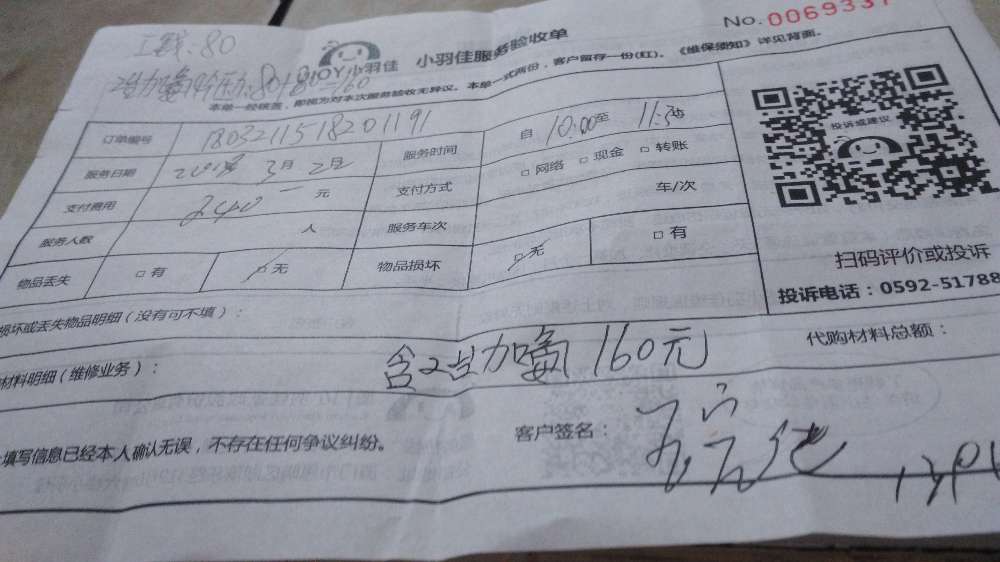 工钱:80
No.0069337
JOY小羽佳 小羽佳服务验收单
80+80=160
本单一经核签，即视为对本次服务验收无异议。本单一式两份，客户留存一份(红)。《维保须知》详见背面。
订单编号 1803211518201191 服务时间 自 10:00至
服务日期 3月 2日 支付方式 □网络 □现金 □转账
支付费用 240 元 服务车次 车/次
服务人数 人 物品损坏 □无 □有
物品丢失 □有 □无
投诉或建议
扫码评价或投诉
投诉电话：0592-51788
损坏或丢失物品明细（没有可不填）：
材料明细（维修业务）： 代购材料总额：
含2台加氟160元
填写信息已经本人确认无误，不存在任何争议纠纷。
客户签名：